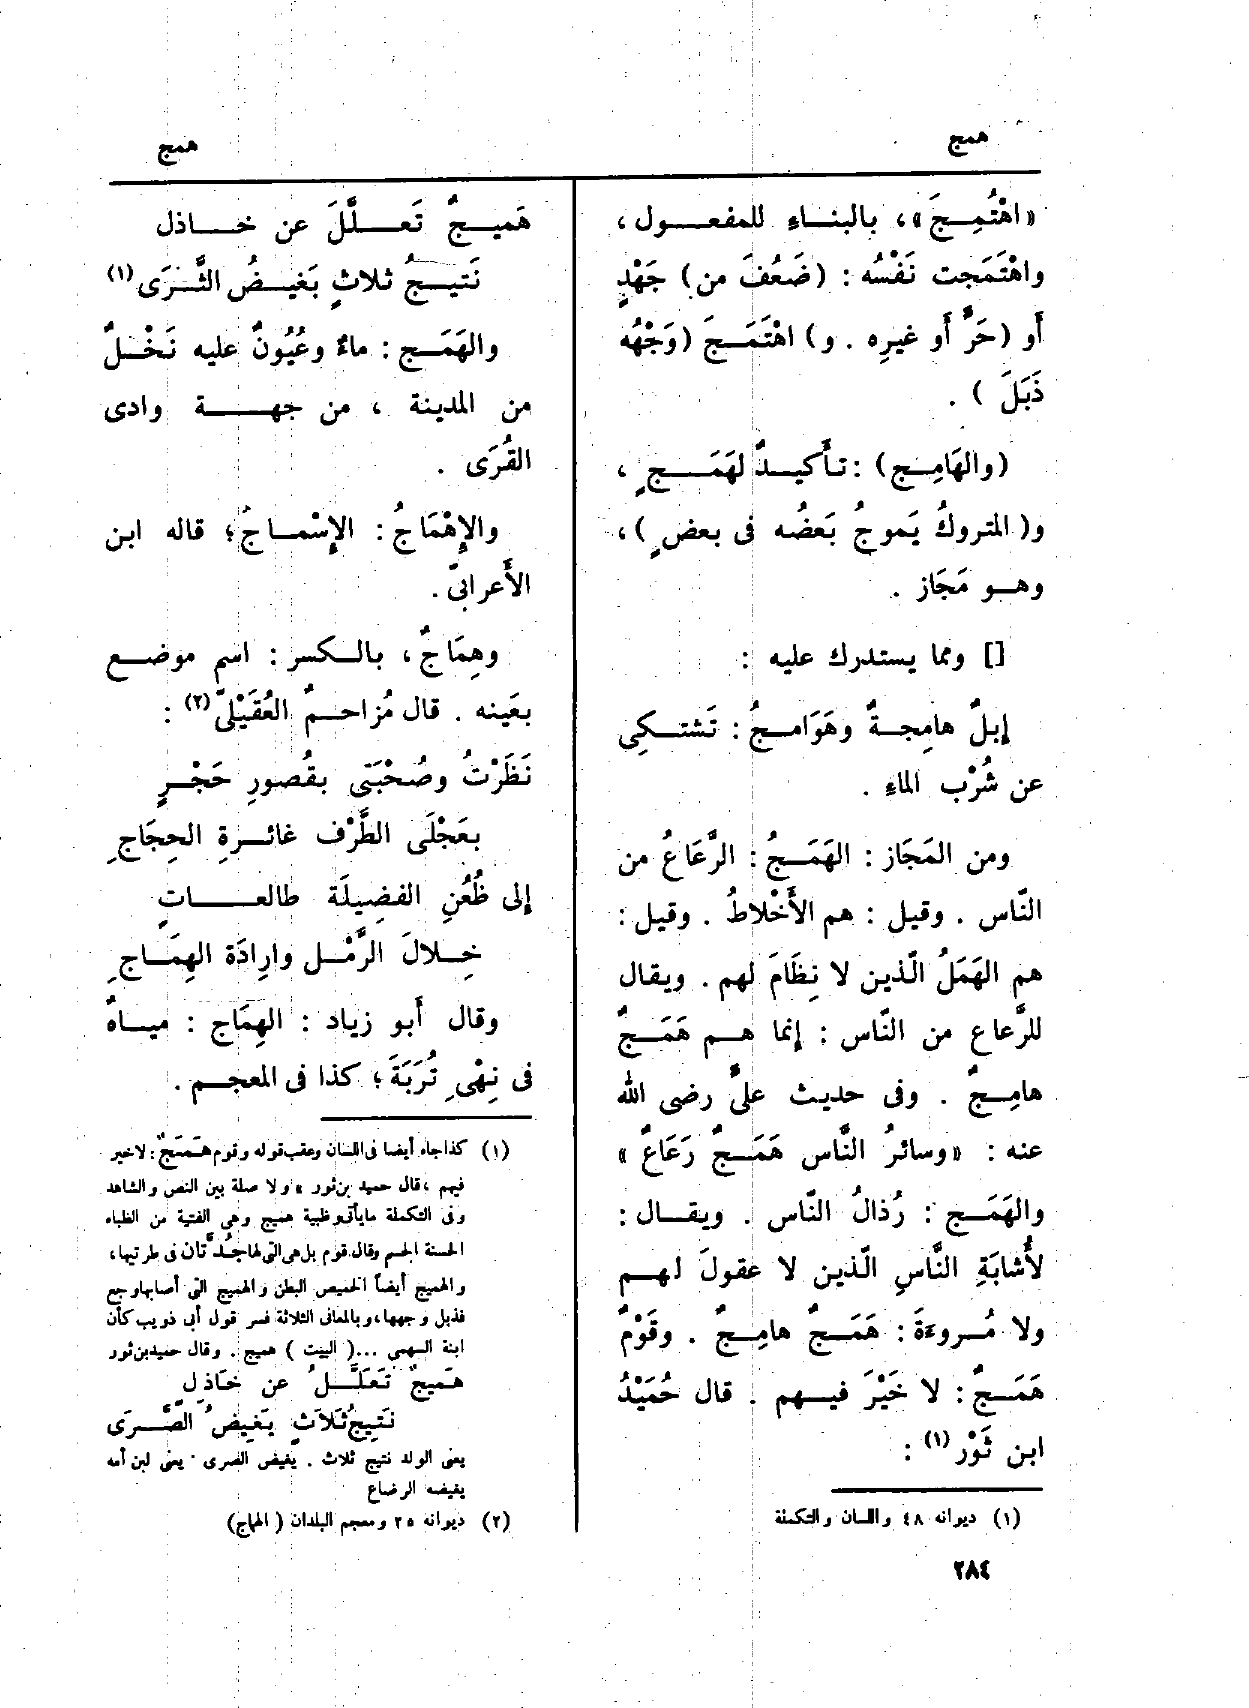 همج
همج
«اهْتُمِجَ»، بالبناءِ للمفعول،
واهْتَمَجت نَفْسُه : (ضَعُفَ من) جَهْدٍ
أَو (حَرٍّ أَو غيرِه . و) اهْتَمَجَ (وَجْهُه
ذَبَلَ ) .
(والهَامِج) : تأْكيدٌ لهَمَجٍ ،
و( المتروكُ يَموجُ بَعضُه فى بعضٍ )،
وهو مَجَاز .
[] ومما يستدرك عليه :
إِبلٌ هامِجةٌ وهَوَامجُ : تَشتكِى
عن شُرْب الماءِ .
ومن المَجَاز : الهَمَجُ : الرَّعَاعُ من
النّاس . وقيل : هم الأَخْلاطُ . وقيل :
هم الهَمَلُ الّذين لا نِظَامَ لهم . ويقال
للرَّعاع من النّاس : إِنما هم هَمَجٌ
هامِجٌ . وفى حديث علىٍّ رضى الله
عنه : «وسائرُ النَّاس هَمَجٌ رَعَاعٌ»
والهَمَج : رُذالُ النّاس . ويقال :
لأُشابَةِ النَّاسِ الّذين لا عقولَ لهم
ولا مُروءَةَ : هَمَجٌ هامِجٌ . وقَوْمٌ
هَمَجٌ : لا خَيْرَ فيهم . قال حُمَيْدُ
ابن ثَوْر (١) :
(١) ديوانه ٤٨ واللسان والتكملة
هَميجٌ تَعلَّلَ عن خاذل
نَتيجُ ثلاثٍ بَغيضُ الثَّرَى (١)
والهَمَج : ماءٌ وعُيُونٌ عليه نَخْلٌ
من المدينة ، من جهة وادى
القُرَى .
والإِهْمَاجُ : الإِسْماجُ ؛ قاله ابن
الأَعرابىّ .
وهِمَاجٌ ، بالكسر : اسم موضع
بعَينه . قال مُزاحمٌ العُقَيْلىّ (٢) :
نَظَرْتُ وصُحْبَتى بقُصورِ حَجْرٍ
بعَجْلَى الطَّرْف غائرةِ الحِجَاجِ
إِلى ظُعُنِ الفضِيلَة طالعاتٍ
خِلالَ الرَّمْل وارِدَة الهِمَاجِ
وقال أَبو زياد : الهِمَاج : مياهٌ
فى نِهْىِ تُرَبَةَ ؛ كذا فى المعجم .
(١) كذا جاء أيضا فى اللسان وعقب قوله وقوم هَمَجٌ : لاخير
فيهم ، قال حميد بن ثور » ولا صلة بين النص والشاهد
وفى التكملة ما يأتى وظبية هميج وهى الفتية من الظباء
الحسنة الجسم وقال قوم بل هى التى لها جُدَّتان فى طرتيها ،
والهميج أيضاً الخميص البطن والهميج التى أصابها وجع
فذبل وجهها ، وبالمعانى الثلاثة فسر قول أبى ذويب كأن
ابنة السهمى ...( البيت ) هميج . وقال حميد بن ثور
هَمِيجٌ تَعَلَّلَ عن خَاذِلٍ
نَتِيجُ ثَلاَثٍ بَغِيضُ الصَّرَى
يعنى الولد نتيج ثلاث . بغيض الصرى . يعنى لبن أمه
يغيضه الرضاع
(٢) ديوانه ٢٥ ومعجم البلدان ( الهماج)
٢٨٤